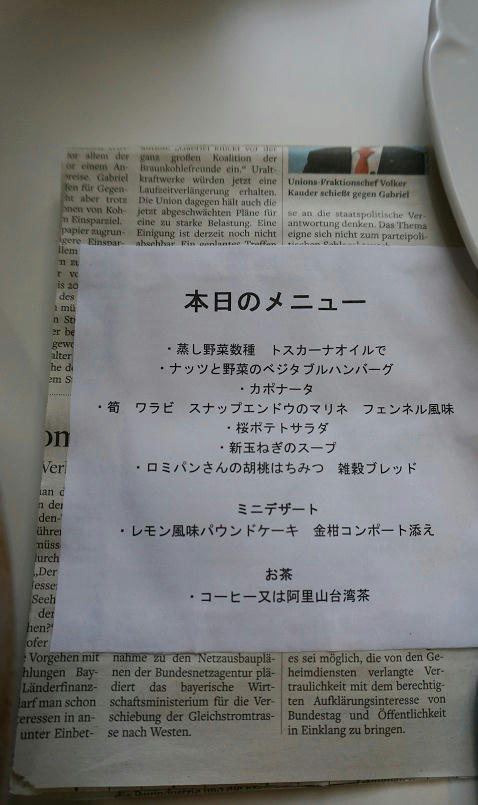 ganz großen Koalition der
Braunkohlefreunde ein." Uralt-
kraftwerke würden jetzt eine
Laufzeitverlängerung erhalten.
Die Union dagegen hält auch die
jetzt abgeschwächten Pläne für
eine zu starke Belastung. Eine
Einigung ist derzeit noch nicht
absehbar. Ein geplantes Treffen
Unions-Fraktionschef Volker
Kauder schießt gegen Gabriel
se an die staatspolitische Ver-
antwortung denken. Das Thema
eigne sich nicht zum parteipoli-
本日のメニュー
・蒸し野菜数種 トスカーナオイルで
・ナッツと野菜のベジタブルハンバーグ
・カポナータ
・筍 ワラビ スナップエンドウのマリネ フェンネル風味
・桜ポテトサラダ
・新玉ねぎのスープ
・ロミパンさんの胡桃はちみつ 雑穀ブレッド
ミニデザート
・レモン風味パウンドケーキ 金柑コンポート添え
お茶
・コーヒー又は阿里山台湾茶
Vorgehen mit
hlungen Bay-
Länderfinanz-
darf man schon
teressen in an-
unter Einbet-
nahme zu den Netzausbauplä-
nen der Bundesnetzagentur plä-
diert das bayerische Wirt-
schaftsministerium für die Ver-
schiebung der Gleichstromtras-
se nach Westen.
es sei möglich, die von den Ge-
heimdiensten verlangte Ver-
traulichkeit mit dem berechtig-
ten Aufklärungsinteresse von
Bundestag und Öffentlichkeit
in Einklang zu bringen.